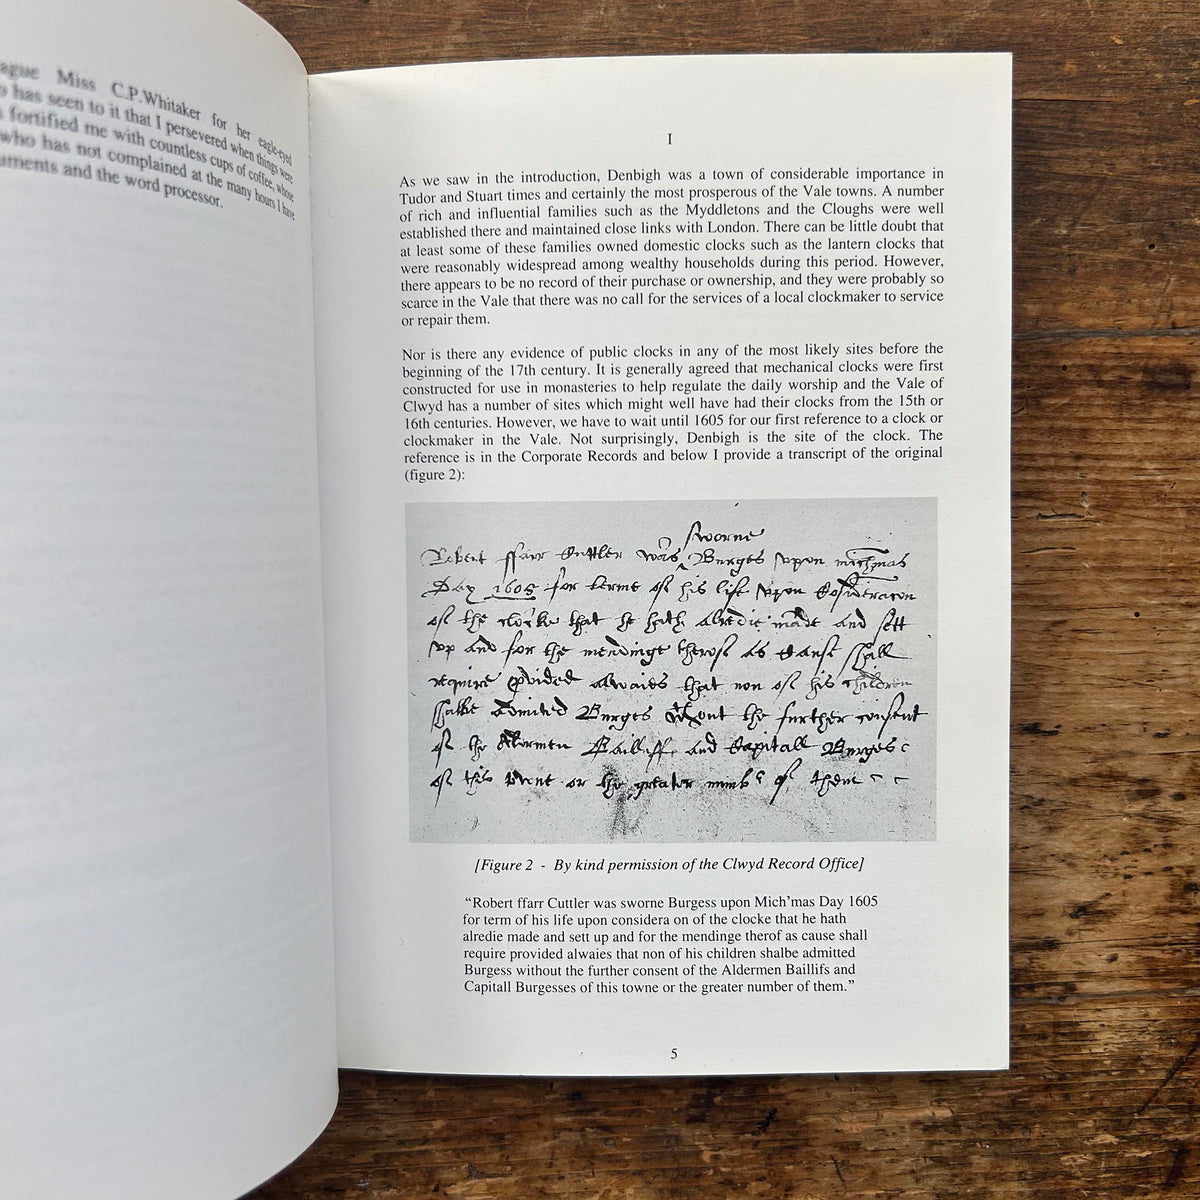 ague Miss C.P.Whitaker for her eagle-eyed
o has seen to it that I persevered when things were
s fortified me with countless cups of coffee, whose
who has not complained at the many hours I have
uments and the word processor.
I
As we saw in the introduction, Denbigh was a town of considerable importance in
Tudor and Stuart times and certainly the most prosperous of the Vale towns. A number
of rich and influential families such as the Myddletons and the Cloughs were well
established there and maintained close links with London. There can be little doubt that
at least some of these families owned domestic clocks such as the lantern clocks that
were reasonably widespread among wealthy households during this period. However,
there appears to be no record of their purchase or ownership, and they were probably so
scarce in the Vale that there was no call for the services of a local clockmaker to service
or repair them.
Nor is there any evidence of public clocks in any of the most likely sites before the
beginning of the 17th century. It is generally agreed that mechanical clocks were first
constructed for use in monasteries to help regulate the daily worship and the Vale of
Clwyd has a number of sites which might well have had their clocks from the 15th or
16th centuries. However, we have to wait until 1605 for our first reference to a clock or
clockmaker in the Vale. Not surprisingly, Denbigh is the site of the clock. The
reference is in the Corporate Records and below I provide a transcript of the original
(figure 2):
sworne
Robert ffarr Cuttler was Burges vpon mich'mas
Day 1605 for terme of his life vpon Consideracon
of the clocke that he hath alredie made and sett
vp and for the mendinge therof as cause shall
require p'vided alwaies that non of his children
shalbe admitted Burges w'thout the further consent
of the Aldermen Bailliffs and Capitall Burges
of this towne or the greater numb' of them
[Figure 2 - By kind permission of the Clwyd Record Office]
“Robert ffarr Cuttler was sworne Burgess upon Mich’mas Day 1605
for term of his life upon considera on of the clocke that he hath
alredie made and sett up and for the mendinge therof as cause shall
require provided alwaies that non of his children shalbe admitted
Burgess without the further consent of the Aldermen Baillifs and
Capitall Burgesses of this towne or the greater number of them.”
5